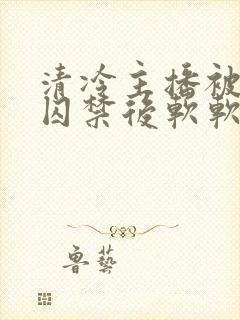 清冷主播被
囚禁後軟軟
魯藝